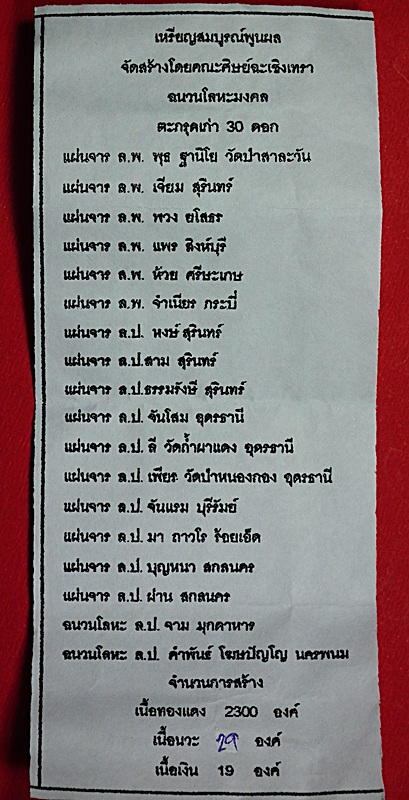 เหรียญสมบูรณ์พูนผล
จัดสร้างโดยคณะศิษย์ฉะเชิงเทรา
ฉนวนโลหะมงคล
ตะกรุดเก่า 30 ดอก
แผ่นจาร ล.พ. พุธ ฐานิโย วัดป่าสาละวัน
แผ่นจาร ล.พ. เจียม สุรินทร์
แผ่นจาร ล.พ. พวง ยโสธร
แผ่นจาร ล.พ. แพร สิงห์บุรี
แผ่นจาร ล.พ. ห้วย ศรีษะเกษ
แผ่นจาร ล.พ. จำเนียร กระบี่
แผ่นจาร ล.ป. หงษ์ สุรินทร์
แผ่นจาร ล.ป.สาม สุรินทร์
แผ่นจาร ล.ป.ธรรมรังษี สุรินทร์
แผ่นจาร ล.ป.จันโสม อุดรธานี
แผ่นจาร ล.ป. ลี วัดถ้ำผาแดง อุดรธานี
แผ่นจาร ล.ป. เพียร วัดป่าหนองกอง อุดรธานี
แผ่นจาร ล.ป.จันแรม บุรีรัมย์
แผ่นจาร ล.ป. มา ถาวโร ร้อยเอ็ด
แผ่นจาร ล.ป. บุญหนา สกลนคร
แผ่นจาร ล.ป. ผ่าน สกลนคร
ฉนวนโลหะ ล.ป. จาม มุกดาหาร
ฉนวนโลหะ ล.ป. คำพันธ์ โฆษปัญโญ นครพนม
จำนวนการสร้าง
เนื้อทองแดง 2300 องค์
เนื้อนวะ องค์
เนื้อเงิน 19 องค์